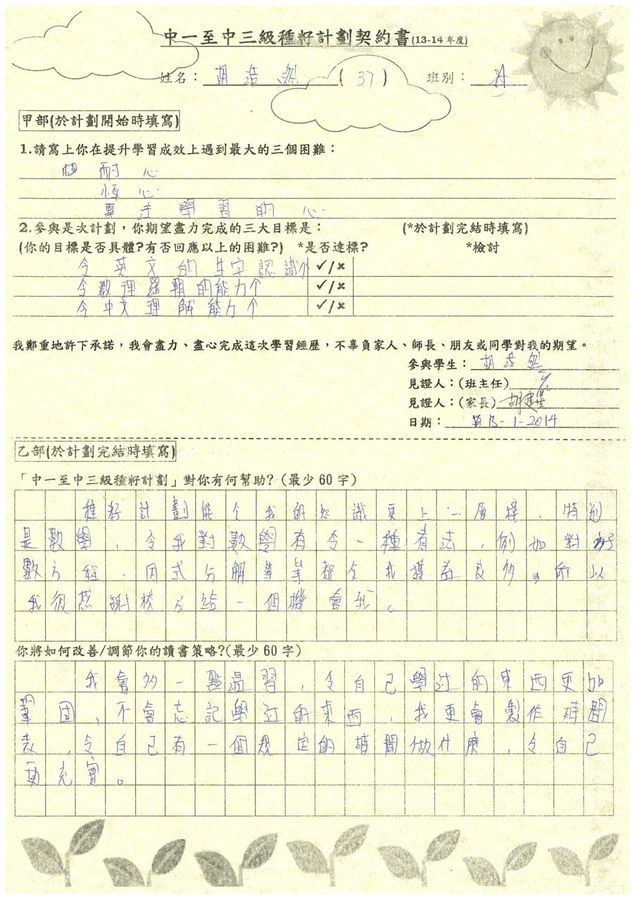 中一至中三級種好計劃契約書(13-14 年度)
姓名： 胡 浩 然 ( 37 ) 班別：
甲部(於計劃開始時填寫)
1.請寫上你在提升學習成效上遇到最大的三個困難：
耐 心
恆 心
學 習 的 心
2.參與是次計劃，你期望盡力完成的三大目標是： (*於計劃完結時填寫)
(你的目標是否具體?有否回應以上的困難?) *是否達標? *檢討
令 英 文 的 生 字 認 識 個 ✓/✗
令 數 理 邏 輯 的 能 力 个 ✓/✗
令 中 文 理 解 能 力 个 ✓/✗
我鄭重地許下承諾，我會盡力、盡心完成這次學習經歷，不辜負家人、師長、朋友或同學對我的期望。
參與學生： 胡 浩 然
見證人：(班主任)
見證人：(家長) 胡建
日期： -1-2014
乙部(於計劃完結時填寫)
「中一至中三級種好計劃」對你有何幫助? (最少 60 字)
種好計劃能令我的知識更上一層樓，特別
是數學，令我對數學有令一種看法，例如對
數方程、因式分解等等都令我獲益良多。所以
我很感謝校方給一個機會我。
你將如何改善/調節你的讀書策略?(最少 60 字)
我會多一點溫習，令自己學过的東西更加
鞏固，不會忘記學过的東西，我更會製作時間
表，令自己有一個規定的時間做什麼，令自己
更充實。